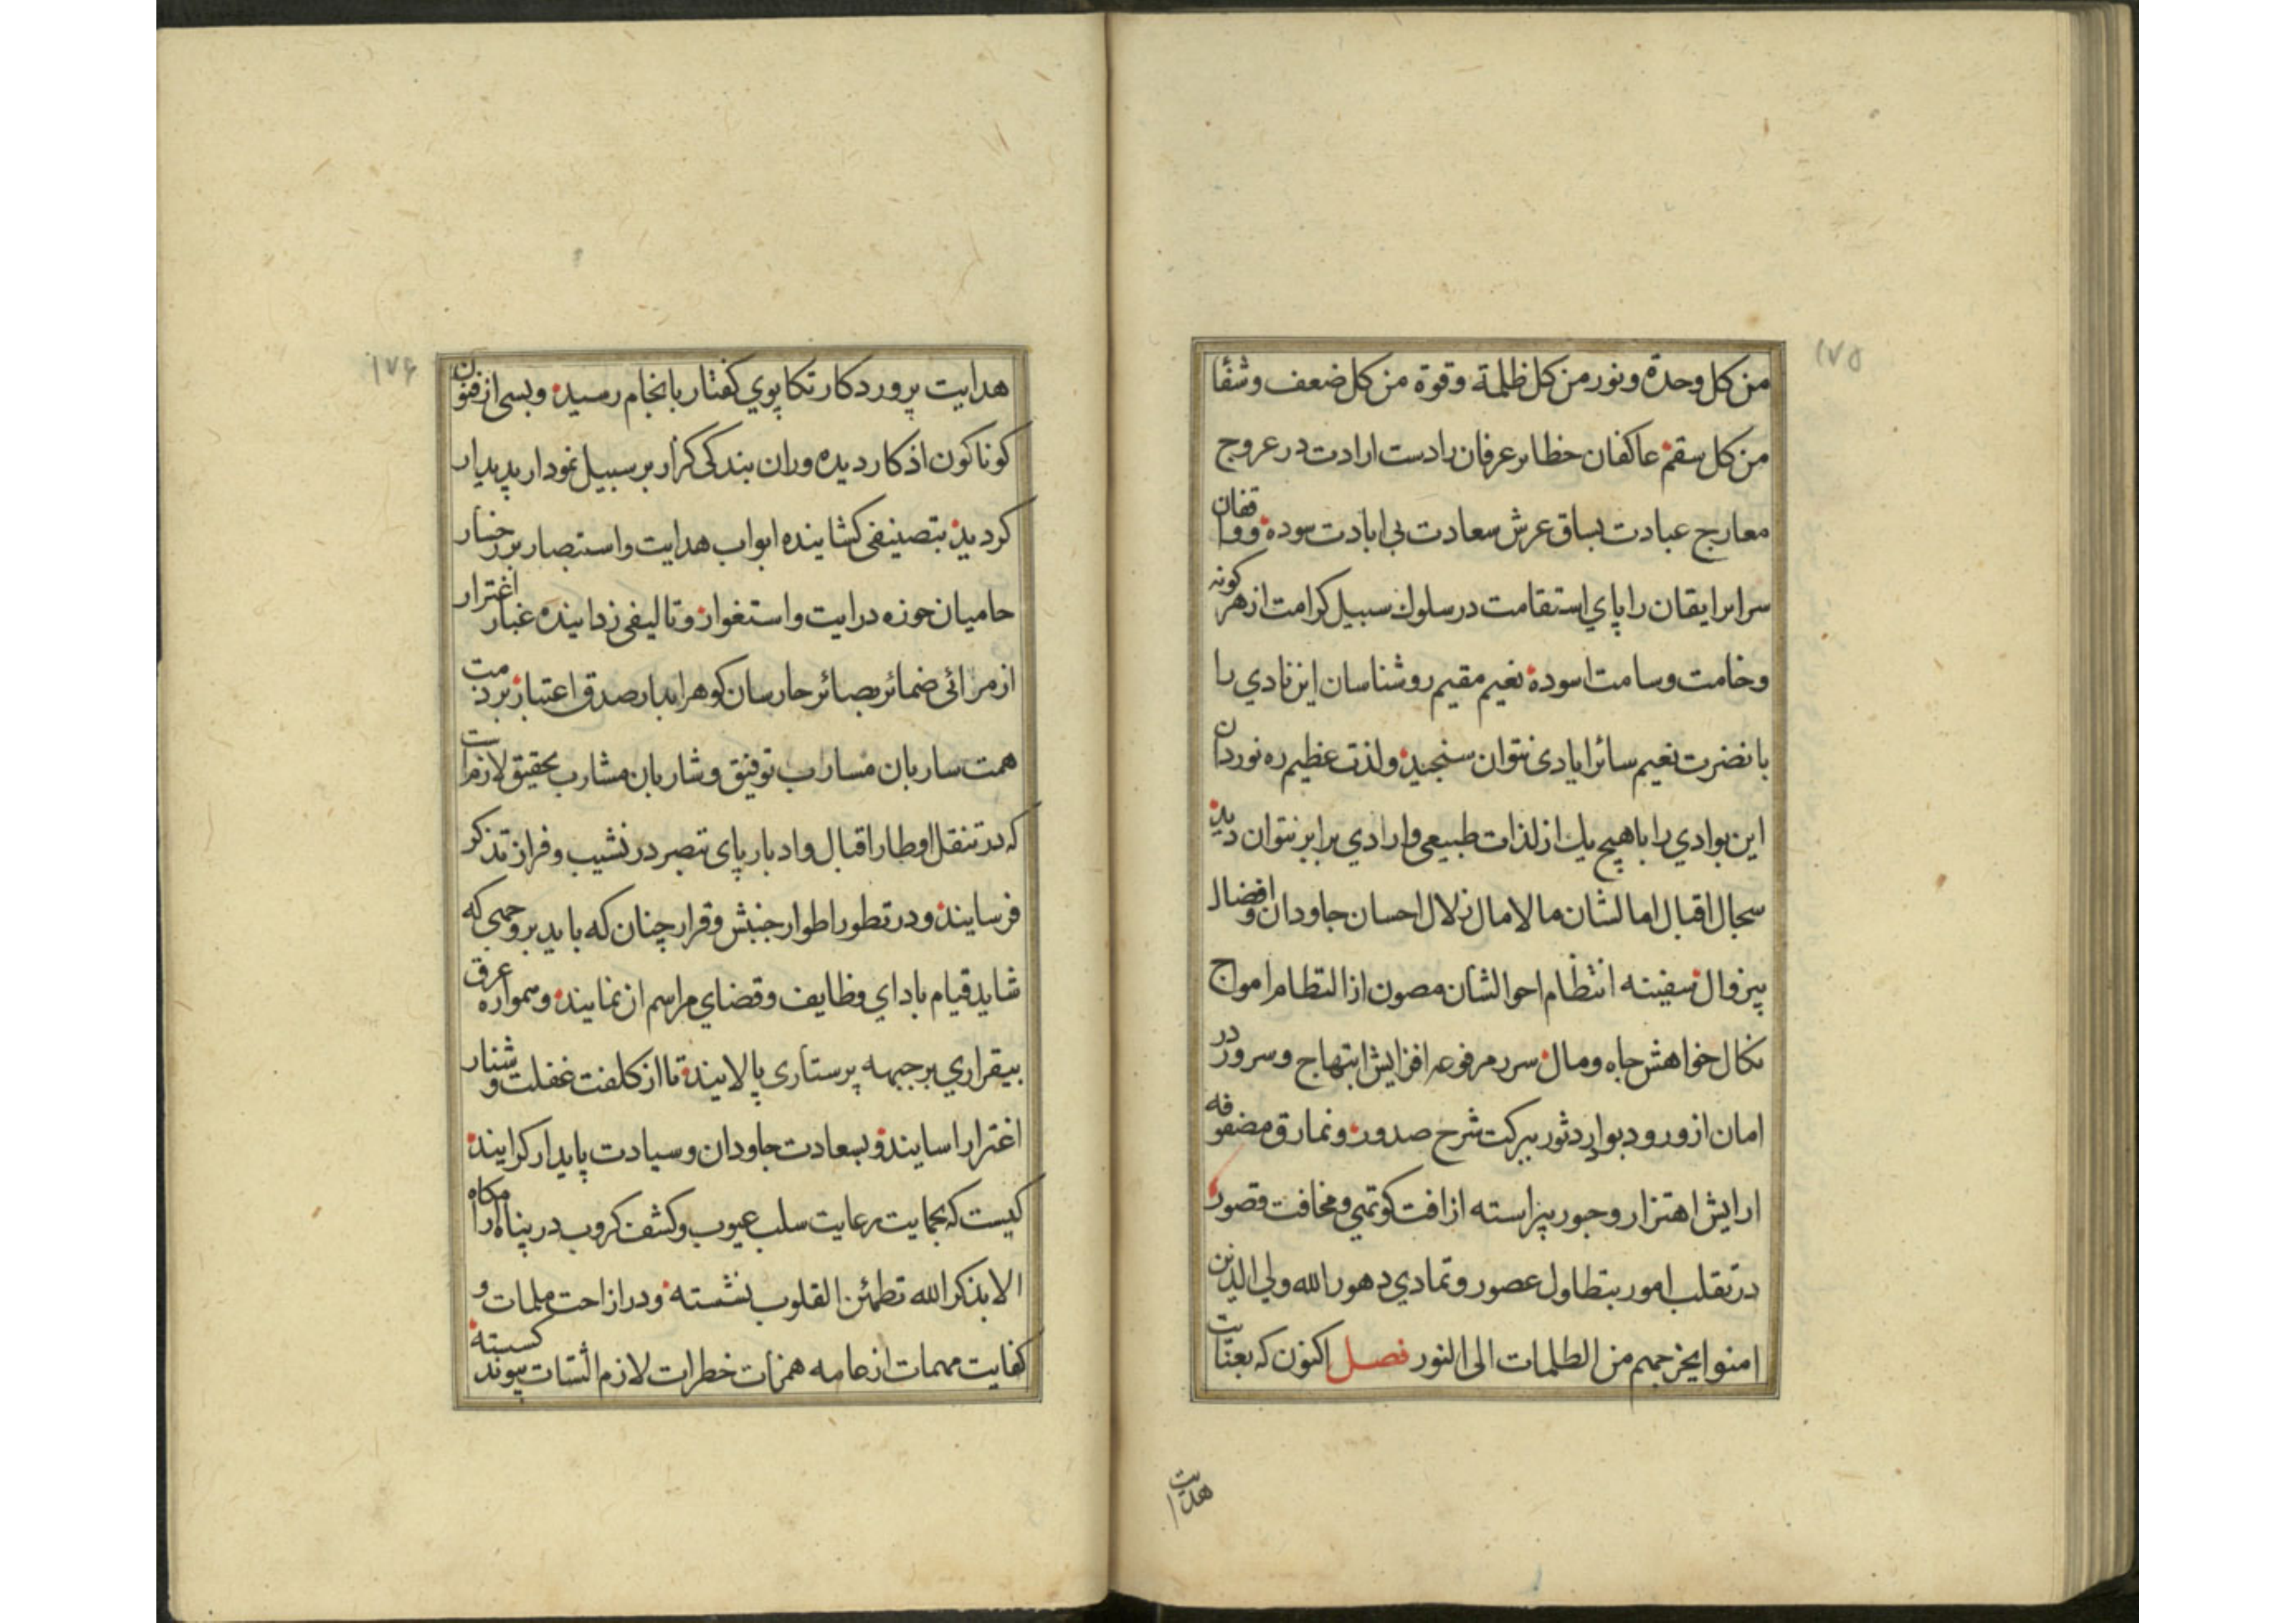 ١٧٥
من كل وحدة ونور من كل ظلمة وقوة من كل ضعف وشفأ
من كل سقم عاكفان حظاير عرفان را دست ارادت در عروج
معارج عبادت بساق عرش سعادت بی ابادت سوده وواقفان
سراير ايقان را پاي استقامت در سلوك سبيل كرامت از هر كونه
وخامت وسامت اسوده نعيم مقيم روشناسان اين نادي را
با نضرت نعيم سائر ايادی نتوان سنجيد ولذت عظيم ره نوردان
اين بوادي را با هيچ يك از لذات طبيعی وارادي برابر نتوان ديد
سجال اقبال امالشان مالامال زلال احسان جاودان وافضال
بيزوال سفينه انتظام احوالشان مصون از التطام امواج
نكال خواهش جاه ومال سرر مرفوعه افزايش ابتهاج وسرور در
امان از ورود بوار دثور ببركت شرح صدور ونمارق مصفوفه
ارايش اهتزاز وحبور پيراسته از افت كوتهي ومخافت قصور
در تقلب امور بتطاول عصور وتمادي دهور الله ولي الذين
امنوا يخرجهم من الظلمات الى النور فصل اكنون كه بعنايت
هدايت
١٧۶
هدايت پروردكار تكاپوي كفتار بانجام رسيد وبسی از فنون
كوناكون اذكار ديده وران بندكی كزار بر سبيل نمودار پديدار
كرديد بتصنيفی كشاينده ابواب هدايت واستبصار بر رخسار
حاميان حوزه درايت واستغوار وتاليفی زداينده غبار اغترار
از مرائی ضمائر بصائر حارسان كوهر ابدار صدق اعتبار بر ذمت
همت ساربان مسارب توفيق وشاربان مشارب تحقيق لازم است
كه در تنقل اوطار اقبال وادبار پای تبصر در نشيب وفراز تذكر
فرسايند ودر تطور اطوار جنبش وقرار چنان كه بايد بر وجهی كه
شايد قيام باداي وظايف وقضاي مراسم ان نمايند وهمواره عرق
بيقراري بر جبهه پرستاری پالايند تا از كلفت غفلت وشنار
اغترار اسايند وبسعادت جاودان وسيادت پايدار كرايند
كيست كه بحمايت رعايت سلب عيوب وكشف كروب در پناه اكاه را
الا بذكر الله تطمئن القلوب نشسته ودر ازاحت ملمات و
كفايت مهمات از عامه همزات خطرات لازم الشتات پيوند كسسته